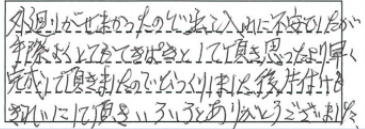 外廻りがせまかったので出し入れに不安でしたが
手際よくとてもてきぱきとして頂き思ったより早く
完成して頂きましたのでびっくりしました。後片付けも
きれいにして頂きいろいろとありがとうございました。